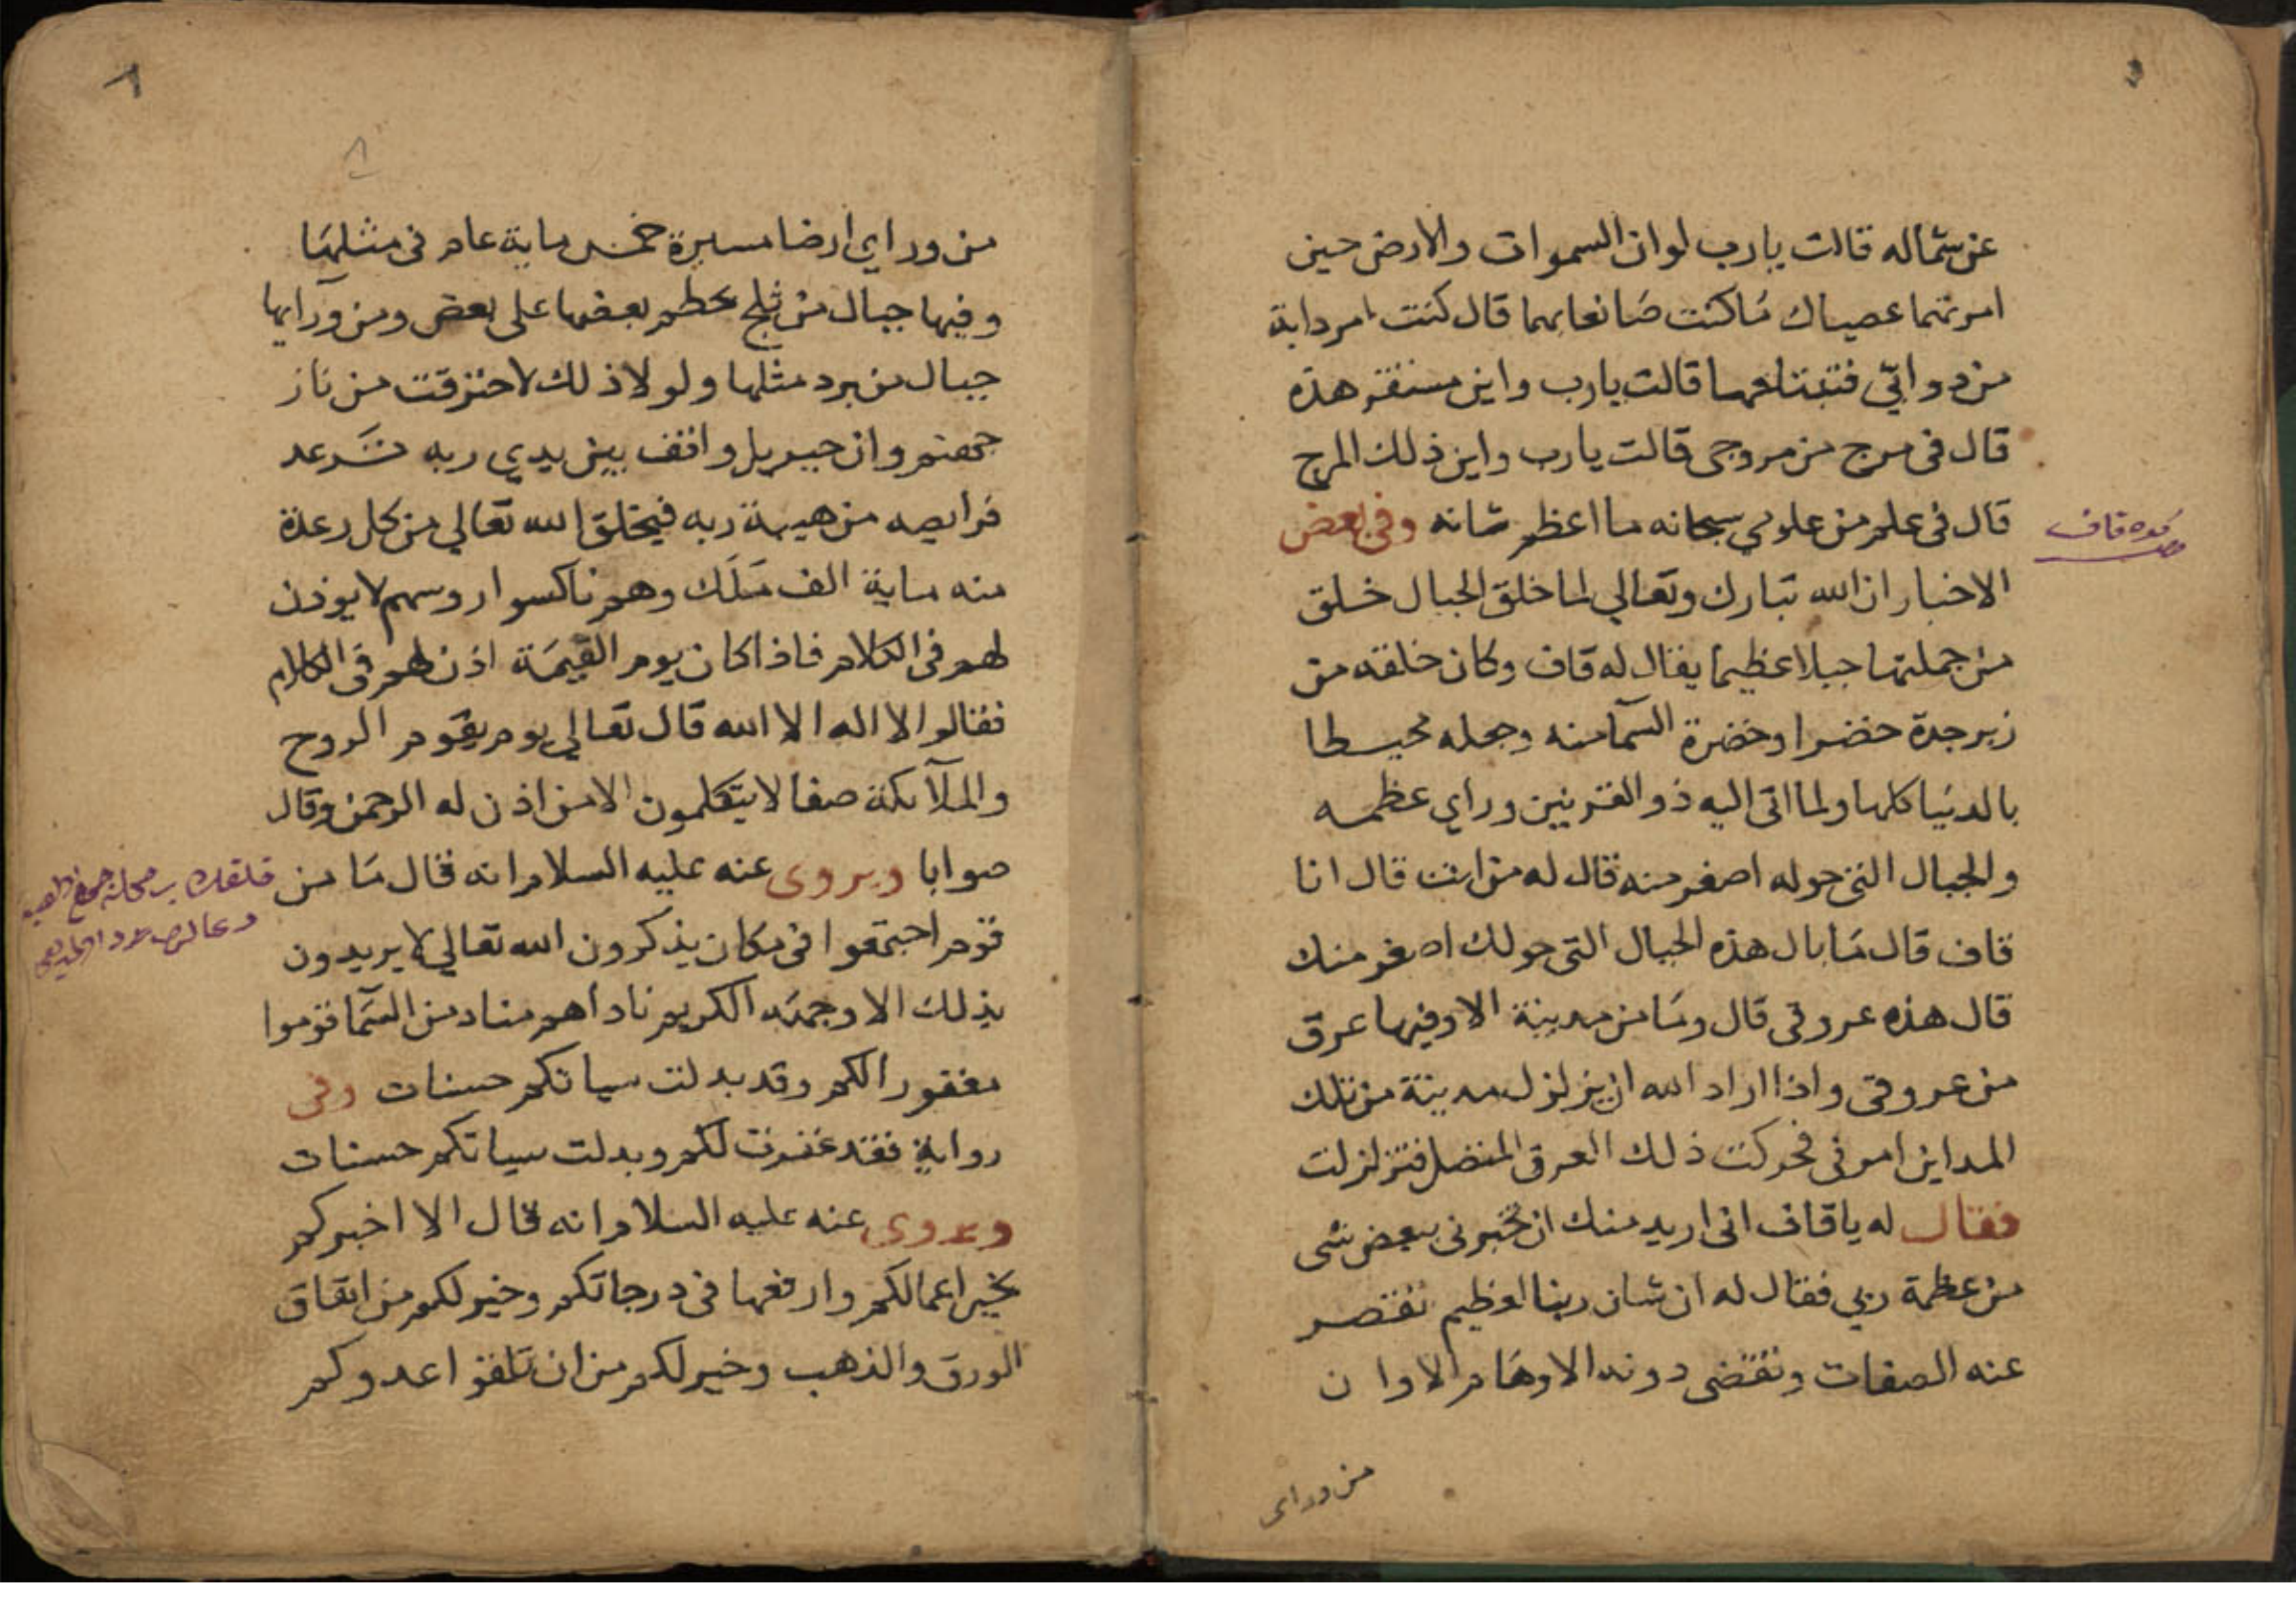 عن شماله قالت يارب لو ان السموات والارض حين
امرتهما عصياك مَا كنت صَانعا بهما قال كنت امر دابة
من دوابي فتبتلعهما قالت يارب واين مستقر هذه
قال فى مرج من مروجى قالت يارب واين ذلك المرج
قال فى علم من علومي سبحانه ما اعظم شانه وفى بعض
الاخبار ان الله تبارك وتعالي لما خلق الجبال خلق
من جملتها جبلا عظيما يقال له قاف وكان خلقته من
زبرجدة خضرا وخضرة السمآ منه وجعله محيطا
بالدنيا كلها ولما اتى اليه ذو القرنين وراي عظمه
والجبال التى حوله اصغر منه قال له من انت قال انا
قاف قال مَا بال هذه الجبال التى حولك اصغر منك
قال هذه عروقى قال ومَا من مدينة الا وفيها عرق
من عروقى واذا اراد الله ان يزلزل مدينة من تلك
المداين امرنى فحركت ذلك العرق المتصل فتزلزلت
فقال له يا قاف انى اريد منك ان تخبرنى ببعض شى
من عظمة ربي فقال له ان شان ربنا لعظيم تقتصر
عنه الصفات وتنقضى دونه الاوهَام الا وا ن
من وراى
قاف
٨
٨
من وراي ارضا مسيرة خمس ماية عام فى مثلهَا
وفيها جبال من ثلج يحطم بعضها على بعض ومن ورآيها
جبال من برد مثلها ولولا ذلك لاحترقت من نار
جهنم وان جبريل واقف بين يدي ربه تَرعد
فرايصه من هيبة ربه فيخلق الله تعالي من كل رعدة
منه ماية الف مَلَك وهم ناكسوا روسهم لا يوذن
لهم فى الكلام فاذا كان يوم القيمَة اذن لهم فى الكلام
فقالوا لا اله الا الله قال تعالي يوم يقوم الروح
والملآئكة صفا لا يتكلمون الا من اذن له الرحمن وقال
صوابا ويروى عنه عليه السلام انه قال مَا من
قوم اجتمعوا فى مكان يذكرون الله تعالي لا يريدون
بذلك الا وجهَه الكريم ناداهم مناد من السمَآ قوموا
مغفورا لكم وقد بدلت سياتكم حسنات وفى
رواية فقد غفرت لكم وبدلت سياتكم حسنات
ويروى عنه عليه السلام انه قال الا اخبركم
بخير اعمالكم وارفعها فى درجاتكم وخير لكم من انفاق
الورق والذهب وخير لكم من ان تلقوا عدوكم